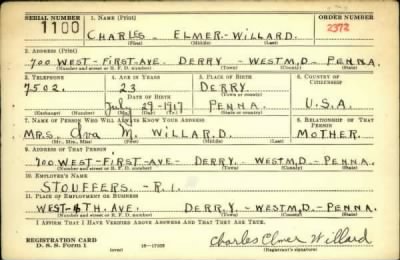 SERIAL NUMBER
1100
1. NAME (Print)
ORDER NUMBER
2372
CHARLES - ELMER - WILLARD.
(First) (Middle) (Last)
2. ADDRESS (Print)
700 WEST - FIRST - AVE. DERRY - WESTM,D - PENNA.
(Number and street or R. F. D. number) (Town) (County) (State)
3. TELEPHONE
7502.
(Exchange) (Number)
4. AGE IN YEARS
23
DATE OF BIRTH
July 29-1917
(Mo.) (Day) (Yr.)
5. PLACE OF BIRTH
DERRY
(Town or county)
PENNA.
(State or country)
6. COUNTRY OF CITIZENSHIP
U.S.A.
7. NAME OF PERSON WHO WILL ALWAYS KNOW YOUR ADDRESS
MRS. Iva M. WILLARD.
(Mr., Mrs., Miss) (First) (Middle) (Last)
8. RELATIONSHIP OF THAT PERSON
MOTHER.
9. ADDRESS OF THAT PERSON
700 WEST - FIRST - AVE - DERRY - WESTM,D - PENNA.
(Number and street or R. F. D. number) (Town) (County) (State)
10. EMPLOYER'S NAME
STOUFFERS. - R. 1.
11. PLACE OF EMPLOYMENT OR BUSINESS
WEST - 6TH. AVE. DERRY. WESTM,D - PENNA.
(Number and street or R. F. D. number) (Town) (County) (State)
I AFFIRM THAT I HAVE VERIFIED ABOVE ANSWERS AND THAT THEY ARE TRUE.
REGISTRATION CARD
D. S. S. Form 1
(over)
Charles Elmer Willard
(Registrant's signature)